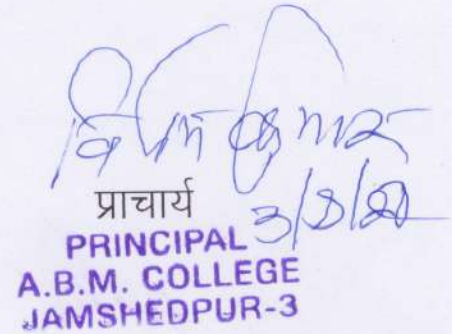 कुमार
प्राचार्य 3/8/20
PRINCIPAL
A.B.M. COLLEGE
JAMSHEDPUR-3